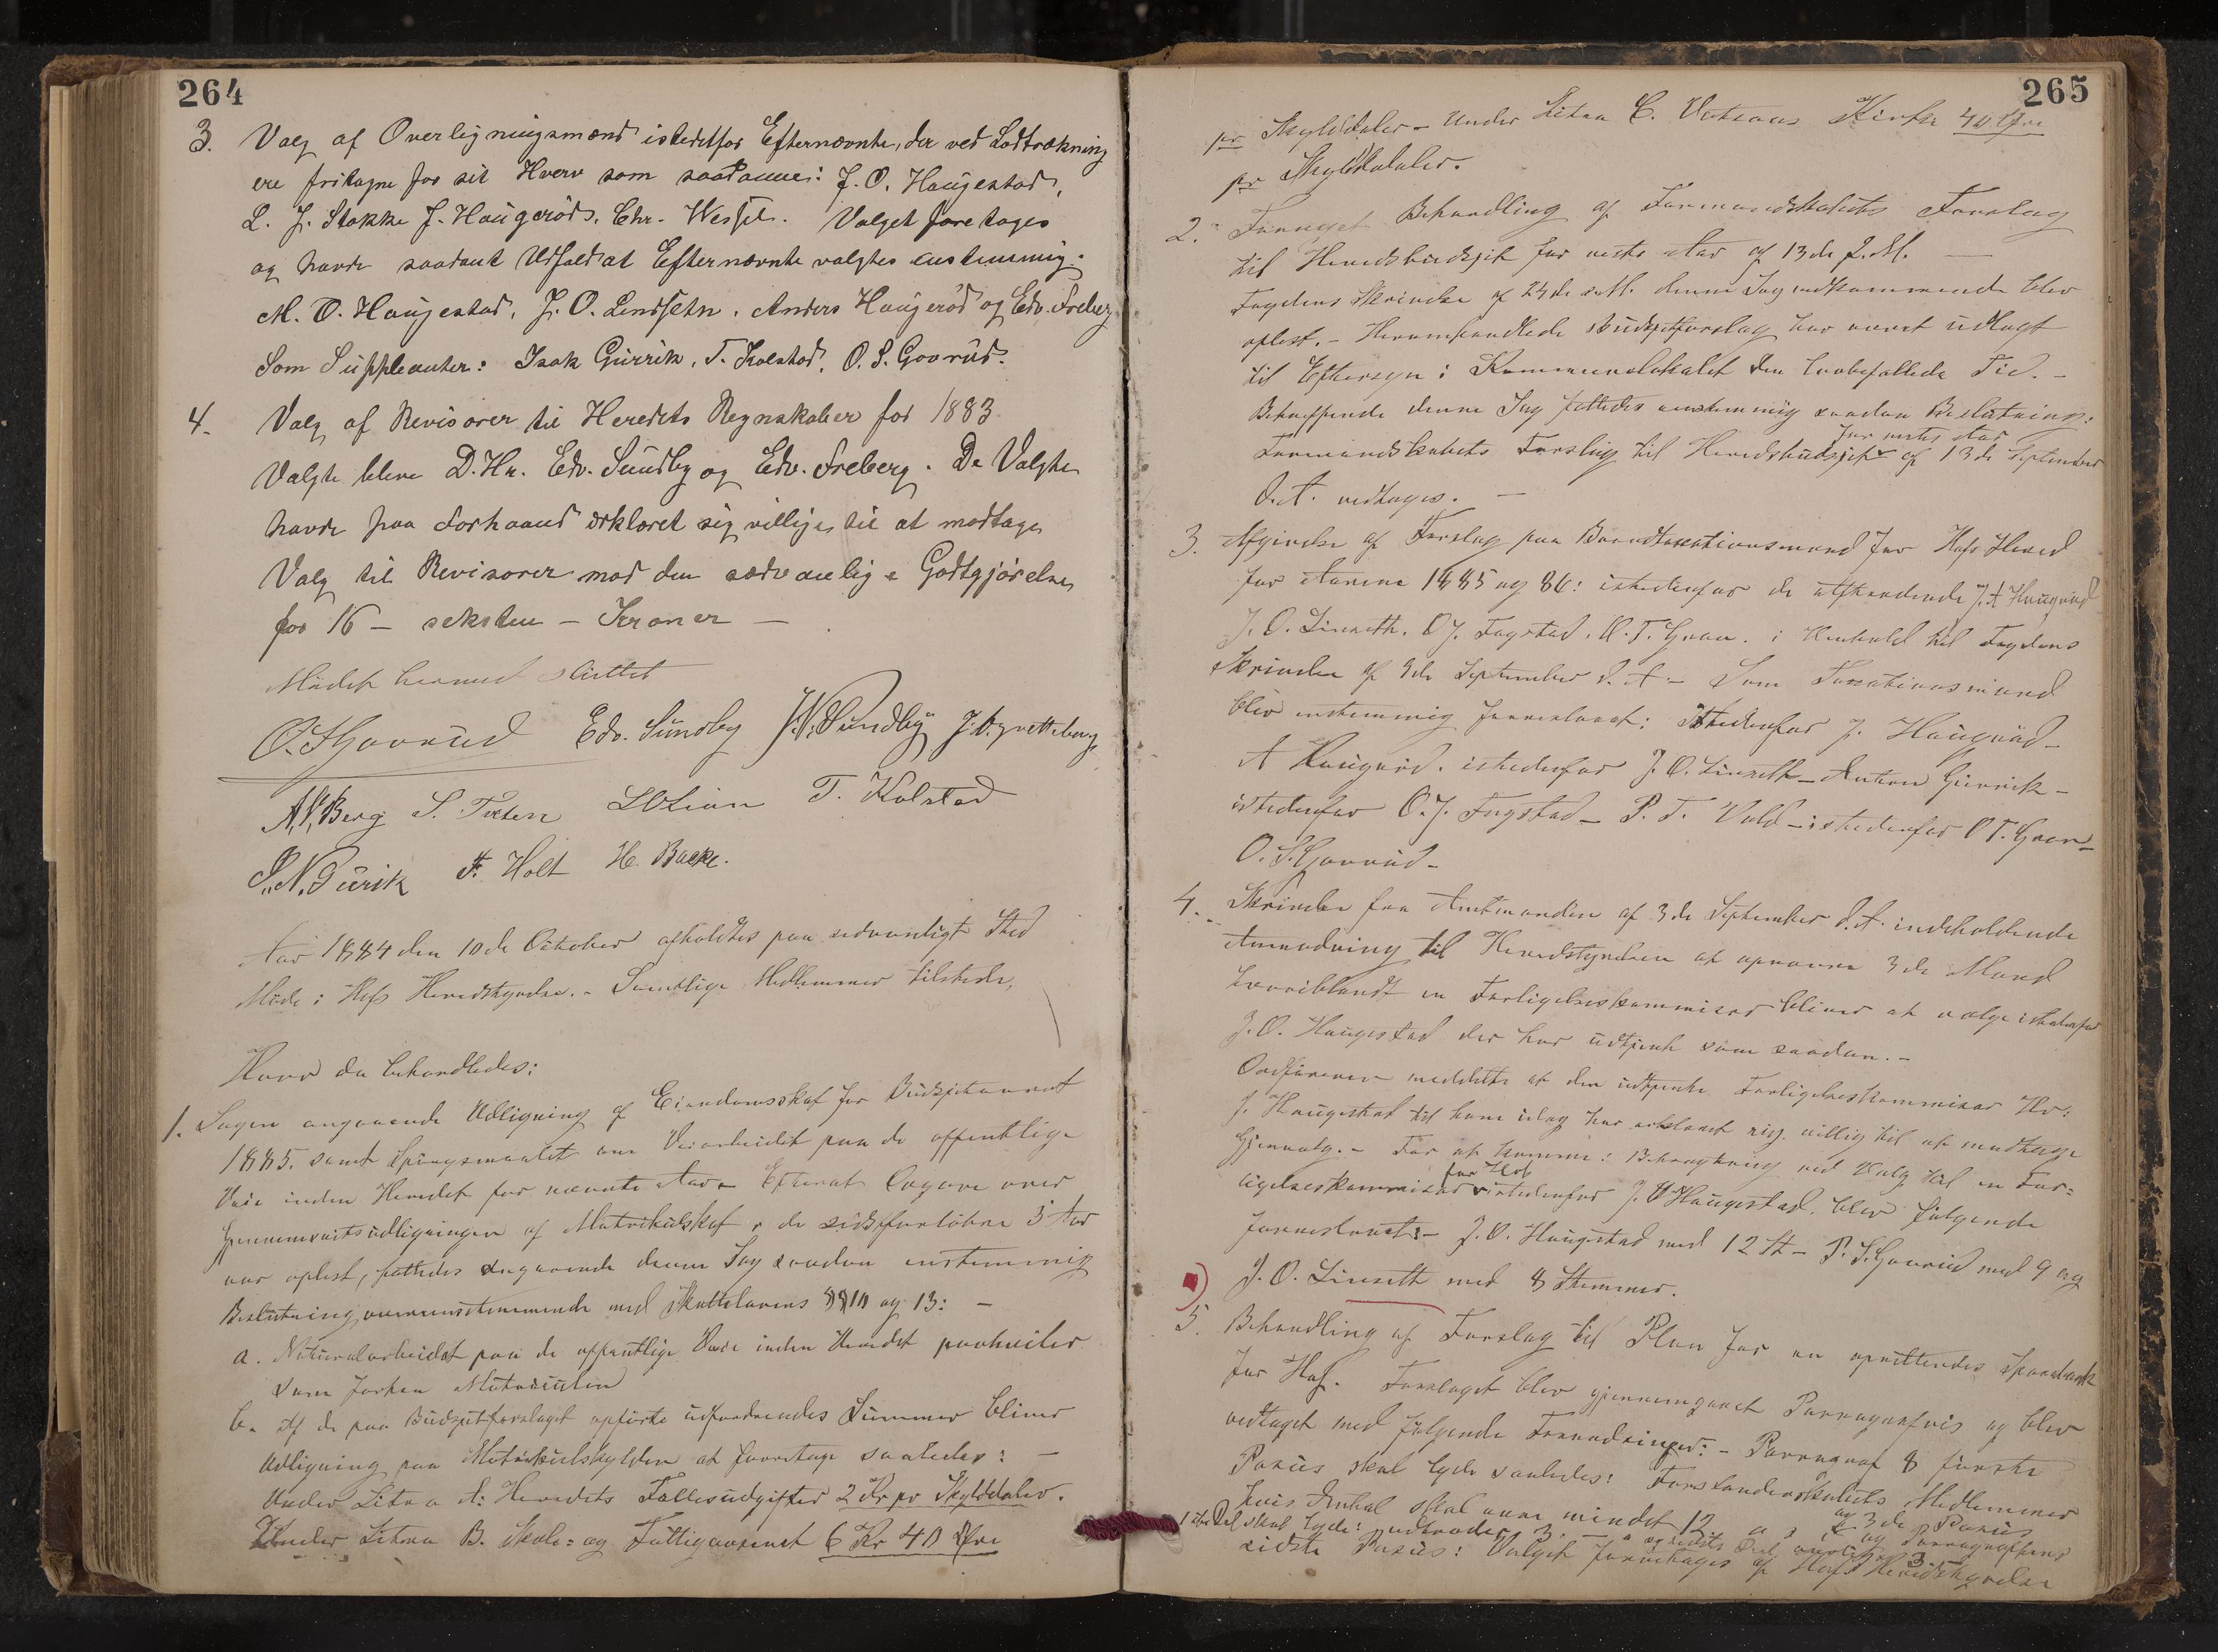 264
3. Valg af Overligningsmænd istedetfor Efternævnte, der ved Lodtrækning
ere fritagne for sit Hverv som saadanne: J. O. Haugestad,
L. J. Stokke J. Haugerød, Chr. Wessel. Valget foretages
og havde saadant Udfald at Efternævnte valgtes enstemmig:
M. O. Haugestad, J. O. Lindseth, Anders Haugerød og Edv. Freberg
Som Suppleanter: Isak Gurrik, T. Kolstad, O. S. Govrud.
4. Valg af Revisorer til Heredets Regnskaber for 1883
Valgte bleve D.Hr. Edv. Sundby og Edv. Freberg. De Valgte
havde paa Forhaand erklæret sig villige til at modtage
Valg til Revisorer mod den sædvanlige Godtgjørelse
for 16 – seksten – Kroner –
Mødet hermed sluttet
O. S. Govrud Edv. Sundby J. N. Sundby J. A.
A. N. Berg S. Tveten L O Lian T. Kolstad
J. N. Gurik F. Holt H. Backe.
Aar 1884 den 10de Oktober afholdtes paa sedvanligt Sted
Møde i Hofs Heredstyrelse. – Samtlige Medlemmer tilstede,
Hvor da behandledes:
1. Sagen angaaende Udligning af Eiendomsskat for Budsjetaaret
1885. samt Spørgsmaalet om Veiarbeidet paa de offentlige
Veie inden Heredet for nævnte Aar. Efterat Opgave over
Gjennemsnitsudligningen af Matrikulskat i de sidstforløbne 3 Aar
var oplest, fattedes angaaende denne Sag saadan enstemmig
Beslutning overensstemmende med Skattelovens §§ 10 og 13: –
a. Naturalarbeidet paa de offentlige Veie inden Heredet paahviler
som forhen Matrikulen
b. Af de paa Budsjetforslaget opførte udfordrendes Summer bliver
Udligning paa Matrikulskylden at foretage saaledes: –
Under Litra A: Heredets Fællesudgifter 2 Kr pr Skylddaler.
Under Litra B. Skole- og Fattigvæsenet 6 Kr 40 Øre
265
pr Skylddaler – Under Litra C. Kirke 40 Øre
pr Skylddaler.
2. Behandling af Formandskabets Forslag
til Heredsbudsjet for neste Aar af 13de f. M. –
Fogdens Skrivelse af 24de s. M. denne Sag vedkommende blev
oplest. – Heromhandlede Budsjetforslag har været udlagt
til Eftersyn i Kommunelokalet den lovbefallede Tid. –
Betreffende denne Sag fattedes enstemmig saadan Beslutning:
for neste Aar
Formandskabets Forslag til Heredsbudsjet af 13de September
d. A. vedtages. –
3. Afgivelse af Forslag paa Brandtaxationsmænd for Hofs Hered
for Aarene 1885 og 86: istedenfor de aftrædende J. A Haugerød
J. O. Linseth, O J. Fogstad, O. T. Gran. i Henhold til Fogdens
Skrivelse af 9de September d. A – Som Taxationsmænd
blev enstemmig foreslaaet: Istedenfor J. Haugerød –
A Haugerød. istedenfor J. O. Linseth – Anton Gurrik –
istedenfor O. J. Fogstad – P. T. Vold – istedenfor O T. Gran –
O. S. Govrud –
4. Skrivelse fra Amtmanden af 3de September d. A. indeholdende
Anmodning til Heredstyrelsen at opnævne 3de Mænd
hvoriblandt en Forligelseskommisær bliver at vælge istedenfor
J. O. Haugestad der har udtjent som saadan. –
Ordføreren meddelte at den udtjente Forligelseskommisær Hr:
J. Haugestad til ham idag har erklæret sig villig til at modtage
Gjenvalg. – For at komme i Betragtning ved Valg til en For-
for Hof
ligelseskommisær istedenfor J. O Haugestad. blev følgende
foreslaaet: – J. O. Haugestad med 12 St – P. S. Govrud med 9 og
J. O. Linseth med 8 Stemmer.
5. Behandling af Forslag til Plan for en oprettendes Sparebank
for Hof. Forslaget blev gjennemgaaet Paragrafvis og blev
vedtaget med følgende Forandringer: – Paragraf 8 første
Passus skal lyde saaledes: Forstanderskabets Medlemmer
hvis Antal skal være mindst 12 og 3de Passus
1ste Del skal lyde: udtræder 3. – og Paragrafens
sidste Passus: Valget foretages af Hofs Heredstyrelse